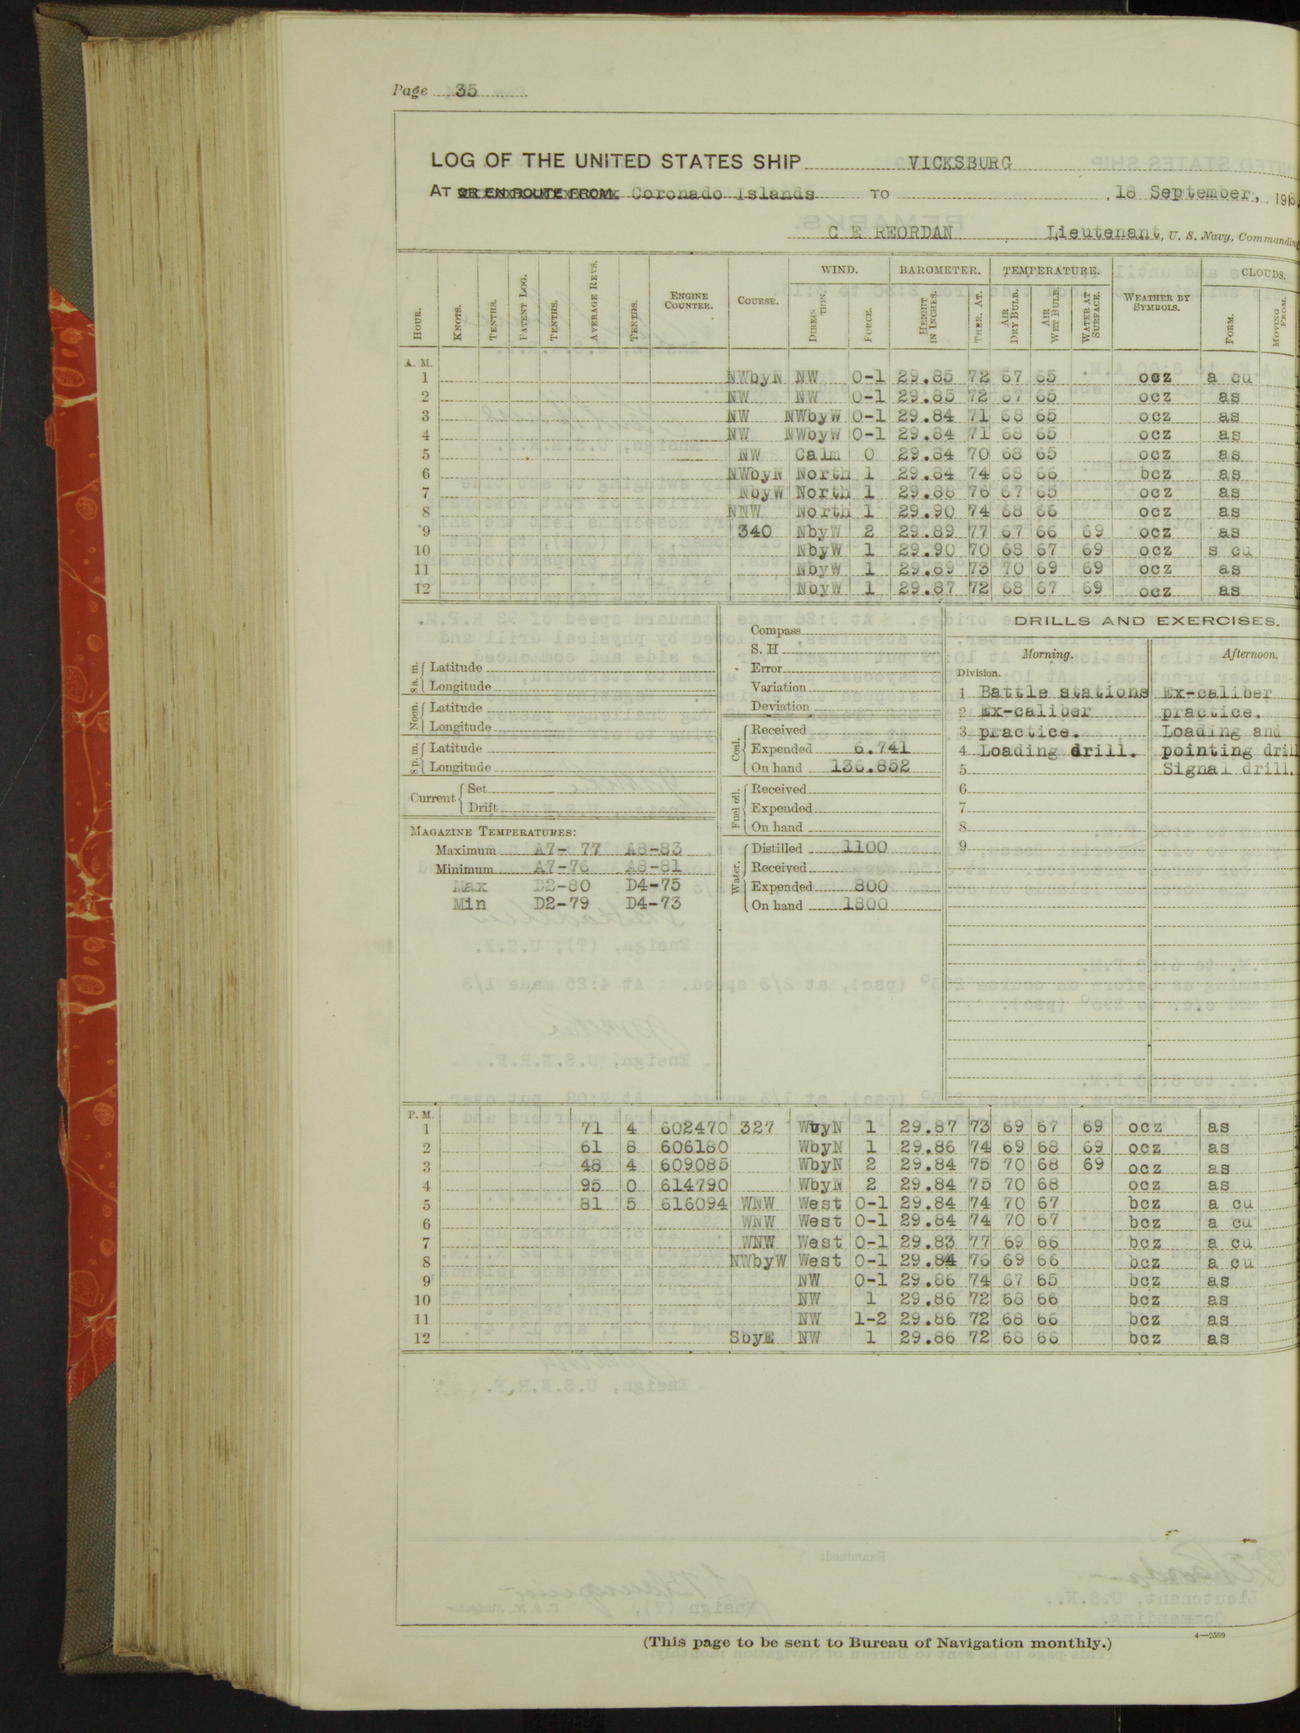 Page 35
LOG OF THE UNITED STATES SHIP VICKSBURG
AT OR EN ROUTE FROM Coronado Islands TO , 18 September, , 1918
C E REORDAN Lieutenant, U. S. Navy, Commanding
WIND. BAROMETER. TEMPERATURE. CLOUDS.
HOUR. KNOTS. TENTHS. PATENT LOG. TENTHS. AVERAGE REVS. TENTHS. ENGINE COUNTER. COURSE. DIRECTION. FORCE. HEIGHT IN INCHES. THER. AT. AIR DRY BULB. AIR WET BULB. WATER AT SURFACE. WEATHER BY SYMBOLS. FORM. MOVING FROM.
A. M.
1 NWbyN NW 0-1 29.85 72 67 65 ocz a cu
2 NW NW 0-1 29.85 72 67 65 ocz as
3 NW NWbyW 0-1 29.84 71 68 65 ocz as
4 NW NWbyW 0-1 29.84 71 68 65 ocz as
5 NW Calm 0 29.84 70 68 65 ocz as
6 NWbyN North 1 29.84 74 68 66 bcz as
7 NbyW North 1 29.88 76 67 65 ocz as
8 NNW North 1 29.90 74 68 66 ocz as
9 340 NbyW 2 29.89 77 67 66 69 ocz as
10 NbyW 1 29.90 70 68 67 69 ocz s cu
11 NbyW 1 29.89 73 70 69 69 ocz as
12 NbyW 1 29.87 72 68 67 69 ocz as
8 a. m. Latitude
Longitude
Noon. Latitude
Longitude
8 p. m. Latitude
Longitude
Current Set
Drift
MAGAZINE TEMPERATURES:
Maximum A7- 77 A8-83
Minimum A7-76 A8-81
Max D2-80 D4-75
Min D2-79 D4-73
Compass
S. H
Error
Variation
Deviation
Coal. Received
Expended 6.741
On hand 136.852
Fuel oil. Received
Expended
On hand
Water. Distilled 1100
Received
Expended 800
On hand 1800
DRILLS AND EXERCISES.
Morning. Afternoon.
Division.
1 Battle stations Ex-caliber
2 Ex-caliber practice.
3 practice. Loading and
4 Loading drill. pointing drill
5 Signal drill.
6
7
8
9
P. M.
1 71 4 602470 327 WbyN 1 29.87 73 69 67 69 ocz as
2 61 8 606180 WbyN 1 29.86 74 69 68 69 ocz as
3 48 4 609085 WbyN 2 29.84 75 70 68 69 ocz as
4 95 0 614790 WbyN 2 29.84 75 70 68 ocz as
5 81 5 616094 WNW West 0-1 29.84 74 70 67 bcz a cu
6 WNW West 0-1 29.84 74 70 67 bcz a cu
7 WNW West 0-1 29.83 77 69 66 bcz a cu
8 NWbyW West 0-1 29.84 76 69 66 bcz a cu
9 NW 0-1 29.86 74 67 65 bcz as
10 NW 1 29.86 72 68 66 bcz as
11 NW 1-2 29.86 72 68 66 bcz as
12 SbyE NW 1 29.86 72 68 66 bcz as
(This page to be sent to Bureau of Navigation monthly.)
4—2599